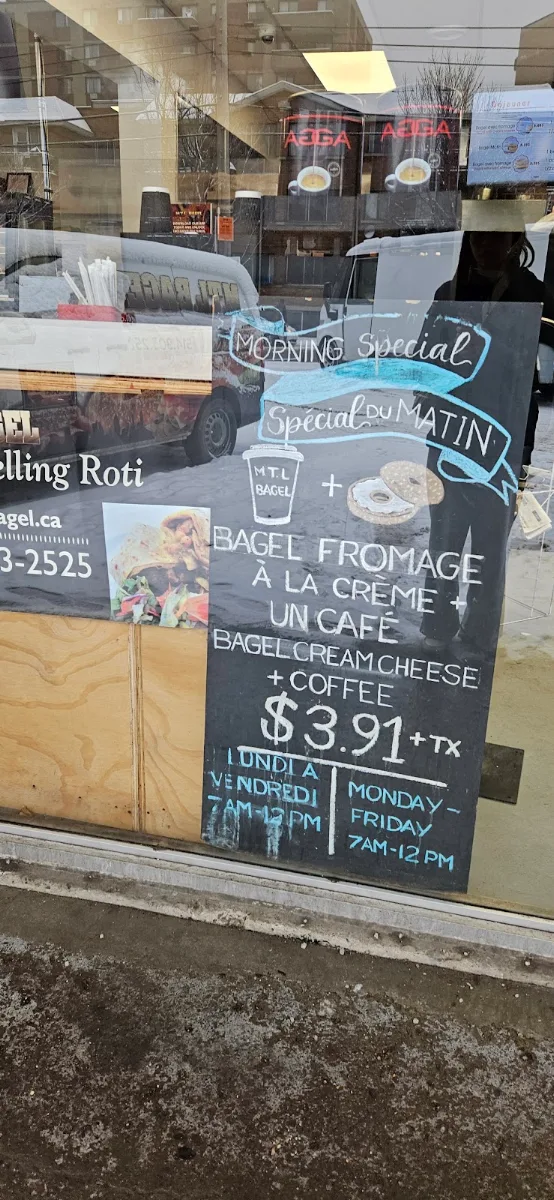 AGGA
AGGA
Déjeuner
MORNING Special
Spécial DU MATIN
M.T.L
BAGEL
+
BAGEL FROMAGE
À LA CRÈME +
UN CAFÉ
BAGEL CREAM CHEESE
+ COFFEE
$3.91 + TX
LUNDI A
VENDREDI
7AM-12 PM
MONDAY-
FRIDAY
7AM-12 PM
GEL
elling Roti
agel.ca
3-2525
MTL BAGE